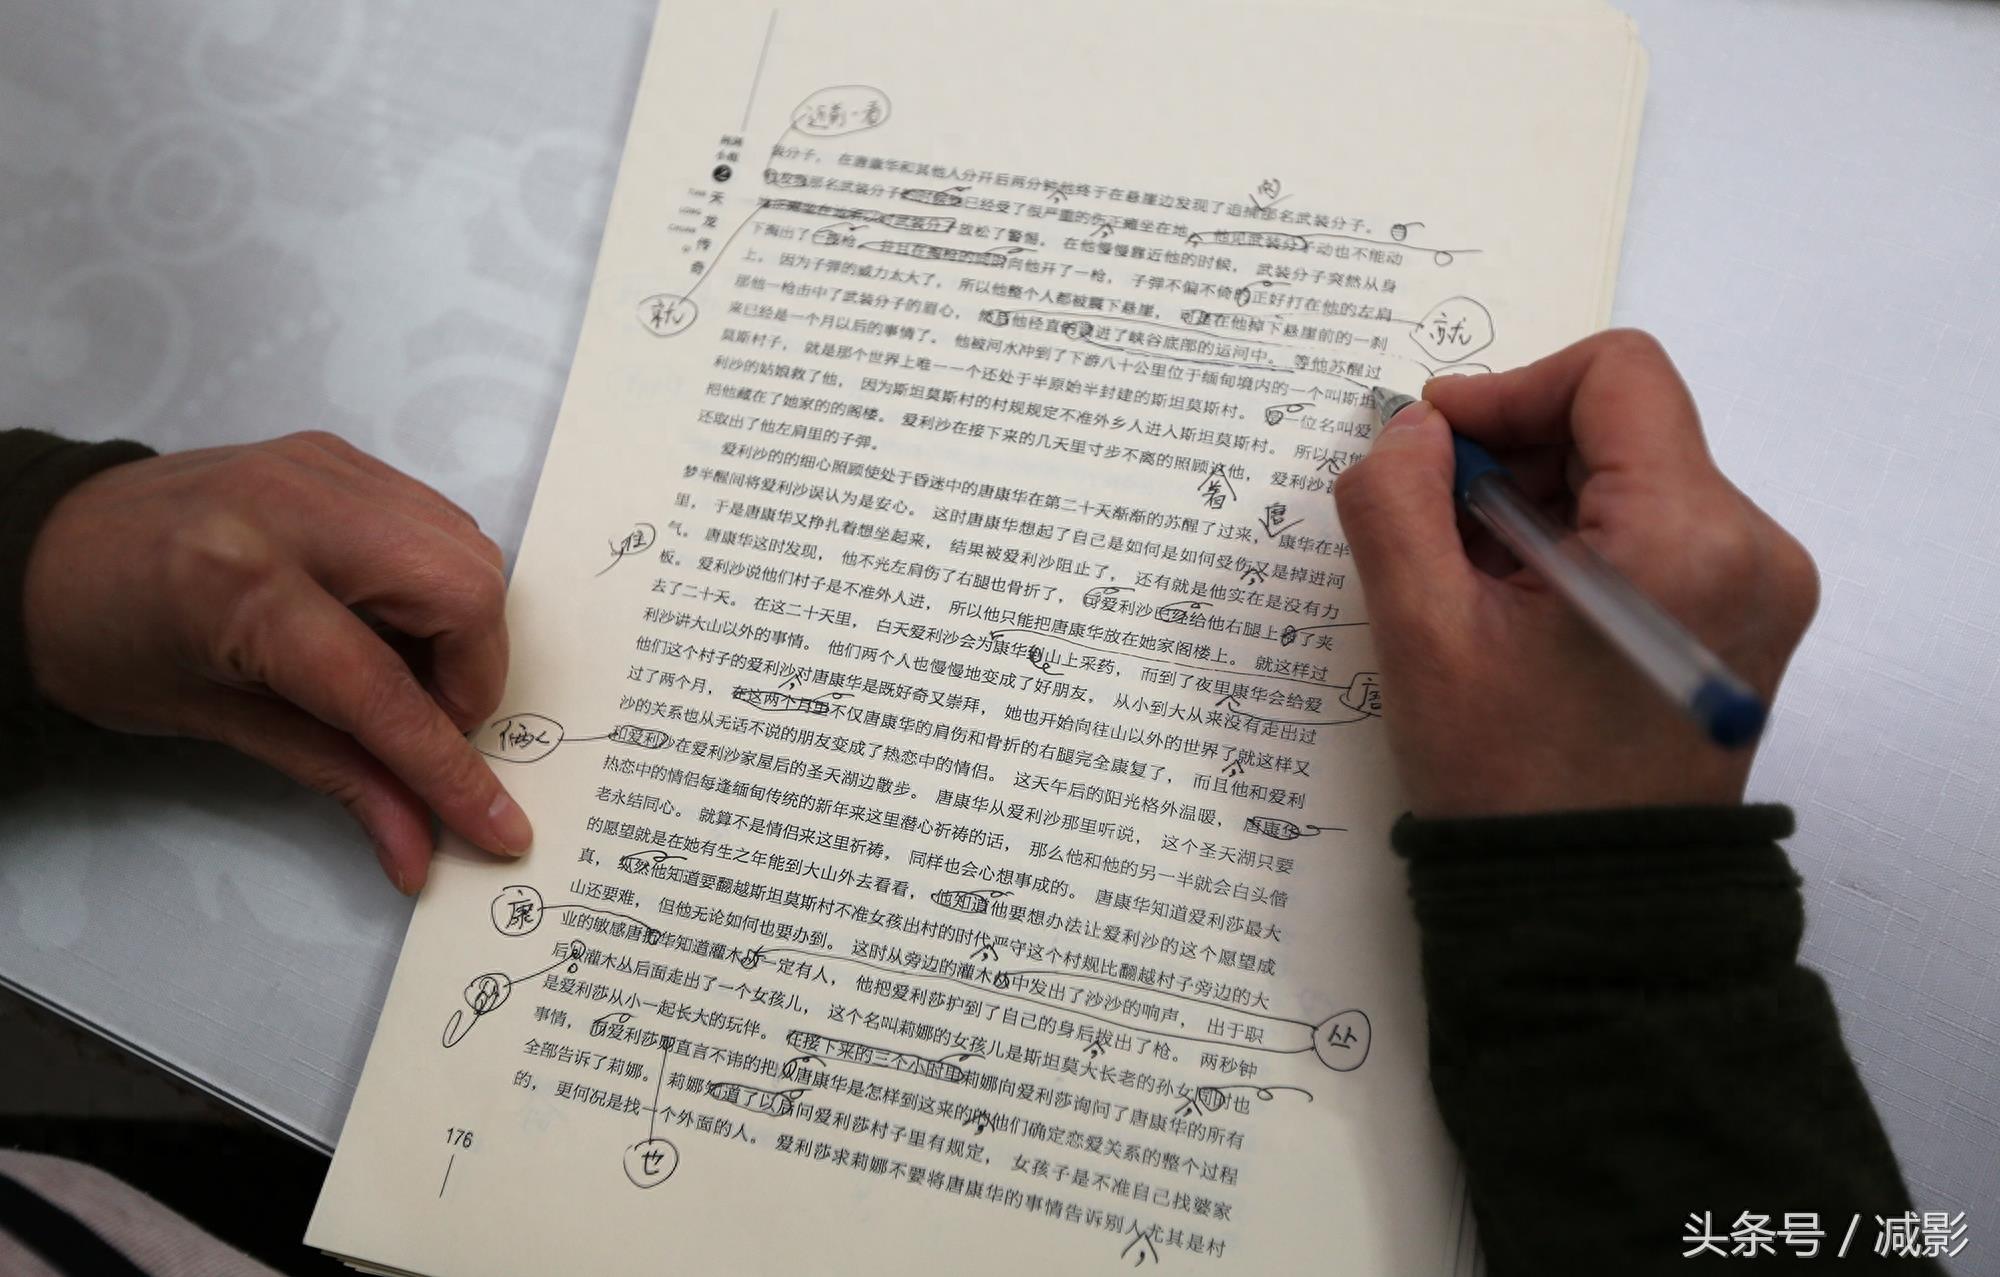 近前一看
装分子， 在唐康华和其他人分开后两分钟他终于在悬崖边发现了追捕那名武装分子。
那名武装分子已经受了很严重的伤正瘫坐在地，他见武装分子动也不能动
放松了警惕。 在他慢慢靠近他的时候， 武装分子突然从身
下掏出了一把枪， 并且在掏枪的瞬间向他开了一枪， 子弹不偏不倚的正好打在他的左肩
上， 因为子弹的威力太大了， 所以他整个人都被震下悬崖， 可是在他掉下悬崖前的一刹
那他一枪击中了武装分子的眉心， 然后他径直的进了峡谷底部的运河中。 等他苏醒过
来已经是一个月以后的事情了。 他被河水冲到了下游八十公里位于缅甸境内的一个叫斯坦
莫斯村子， 就是那个世界上唯一一个还处于半原始半封建的斯坦莫斯村。 一位名叫爱
利沙的姑娘救了他， 因为斯坦莫斯村的村规规定不准外乡人进入斯坦莫斯村。 所以只能
把他藏在了她家的的阁楼。 爱利沙在接下来的几天里寸步不离的照顾这他， 爱利沙
还取出了他左肩里的子弹。
爱利沙的的细心照顾使处于昏迷中的唐康华在第二十天渐渐的苏醒了过来， 康华在半
梦半醒间将爱利沙误认为是安心。 这时唐康华想起了自己是如何是如何受伤又是掉进河
里， 于是唐康华又挣扎着想坐起来， 结果被爱利沙阻止了， 还有就是他实在是没有力
气。 唐康华这时发现， 他不光左肩伤了右腿也骨折了， 爱利沙已经给他右腿上了夹
板。 爱利沙说他们村子是不准外人进， 所以他只能把唐康华放在她家阁楼上。 就这样过
去了二十天。 在这二十天里， 白天爱利沙会为康华到山上采药， 而到了夜里康华会给爱
利沙讲大山以外的事情。 他们两个人也慢慢地变成了好朋友， 从小到大从来没有走出过
他们这个村子的爱利沙对唐康华是既好奇又崇拜， 她也开始向往山以外的世界了就这样又
过了两个月， 在这两个月里不仅唐康华的肩伤和骨折的右腿完全康复了， 而且他和爱利
沙的关系也从无话不说的朋友变成了热恋中的情侣。 这天午后的阳光格外温暖， 唐康华
和爱利沙在爱利沙家屋后的圣天湖边散步。 唐康华从爱利沙那里听说， 这个圣天湖只要
热恋中的情侣每逢缅甸传统的新年来这里潜心祈祷的话， 那么他和他的另一半就会白头偕
老永结同心。 就算不是情侣来这里祈祷， 同样也会心想事成的。 唐康华知道爱利莎最大
的愿望就是在她有生之年能到大山外去看看， 他知道他要想办法让爱利沙的这个愿望成
真， 纵然他知道要翻越斯坦莫斯村不准女孩出村的时代严守这个村规比翻越村子旁边的大
山还要难， 但他无论如何也要办到。 这时从旁边的灌木丛中发出了沙沙的响声， 出于职
业的敏感唐华知道灌木一定有人， 他把爱利莎护到了自己的身后拔出了枪。 两秒钟
后从灌木丛后面走出了一个女孩儿， 这个名叫莉娜的女孩儿是斯坦莫大长老的孙女同时也
是爱利莎从小一起长大的玩伴。 在接下来的三个小时里莉娜向爱利莎询问了唐康华的所有
事情， 而爱利莎则直言不讳的把唐康华是怎样到这来的的他们确定恋爱关系的整个过程
全部告诉了莉娜。 莉娜知道了以后问爱利莎村子里有规定， 女孩子是不准自己找婆家
的， 更何况是找一个外面的人。 爱利莎求莉娜不要将唐康华的事情告诉别人尤其是村
176
之
天
龙
传
奇
就
就
着
唐
住
俩人
唐
康
丛
也
头条号 / 减影